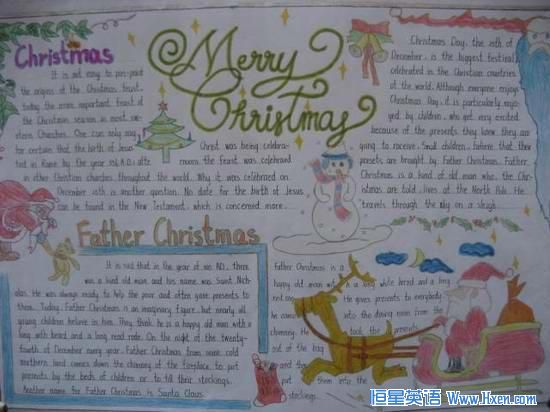 Christmas
It is not easy to pin-point
the origins of the Christmas feast,
today the most important feast of
the Christmas season in most we-
stern Churches. One can only say
for certain that the birth of Jesus
ted in Rome by the year
in other Christian churches throughout the world. Why it was celebrated on
December 25th is another question. No date for the birth of Jesus
can be found in the New Testament, which is concerned more
Christ was being celebra-
the feast was celebrated
Merry
Christmas
Christmas Day, the 25th of
December, is the biggest festival
celebrated in the Christian countries
of the world. Although everyone enjoys
Christmas Day, it is particularly enjo-
yed by children, who get very excited
because of the presents they know they are
going to receive. Small children believe that their
presents are brought by Father Christmas. Father
Christmas is a kind of old man who, the Chr-
istmas are told, lives at the North Pole. He
travels through the sky on a sleigh
Father Christmas
It is said that in the year of 300 AD, there
was a kind old man and his name was Saint Nich-
olas. He was always ready to help the poor and often gave presents to
them. Today, Father Christmas is an imaginary figure, but nearly all
young children believe in him. They think he is a happy old man with a
long with beard and a long read robe. On the night of the twenty-
fourth of December every year, Father Christmas from some cold
northern land comes down the chimney of the fireplace to put
presents by the beds of children or to fill their stockings.
Another name for Father Christmas is Santa Claus.
Father Christmas is a
happy old man with a long white beard and a long
He gives presents to everybody
he comes into the dining room from the
chimney. He took the presents
out of the bag
and put them into the
恒星英语 Www.Hxen.com